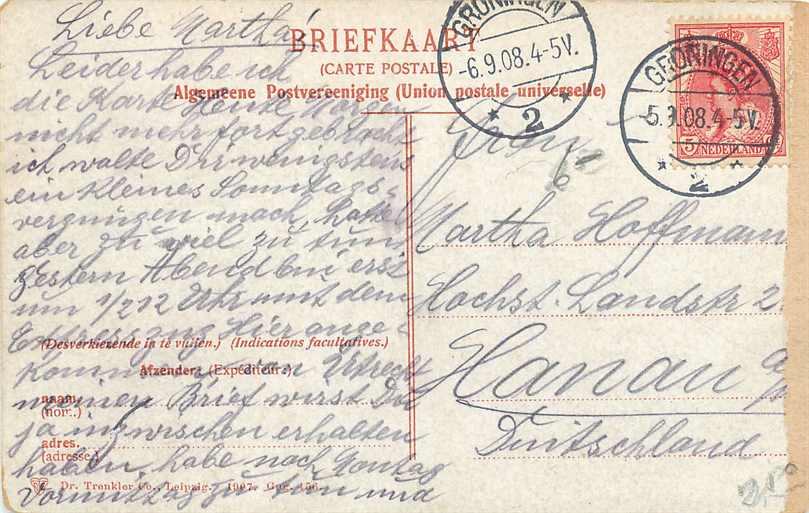 Liebe Martha!
Leider habe ich
die Karte Heute Morgen
nicht mehr fortgebracht
ich wolte Dir wenigstens
ein kleines Sonntags-
vergnügen mach, hatte
aber zu viel zu tun
gestern Abend bin erst
um 1/2 12 Uhr mit dem
Expresszug Hier ange-
kommen von Utrecht
meinen Brief wirst Du
ja inzwischen erhalten
haben, habe noch Montag
Vormittag zu tun und
BRIEFKAART
(CARTE POSTALE)
Algemeene Postvereeniging (Union postale universelle)
(Desverkiezende in te vullen.) (Indications facultatives.)
Afzender: (Expéditeur:)
naam.
(nom.)
adres.
(adresse.)
Dr. Trenkler Co., Leipzig. 1907. Gng. 156.
GRONINGEN
-6.9.08.4-5V.
2
GRONINGEN
-5.9.08.4-5V.
2
5
NEDERLAND
Frau
Martha Hoffmann
Hochst. Landstr 2
Hanau a/M
Duitschland